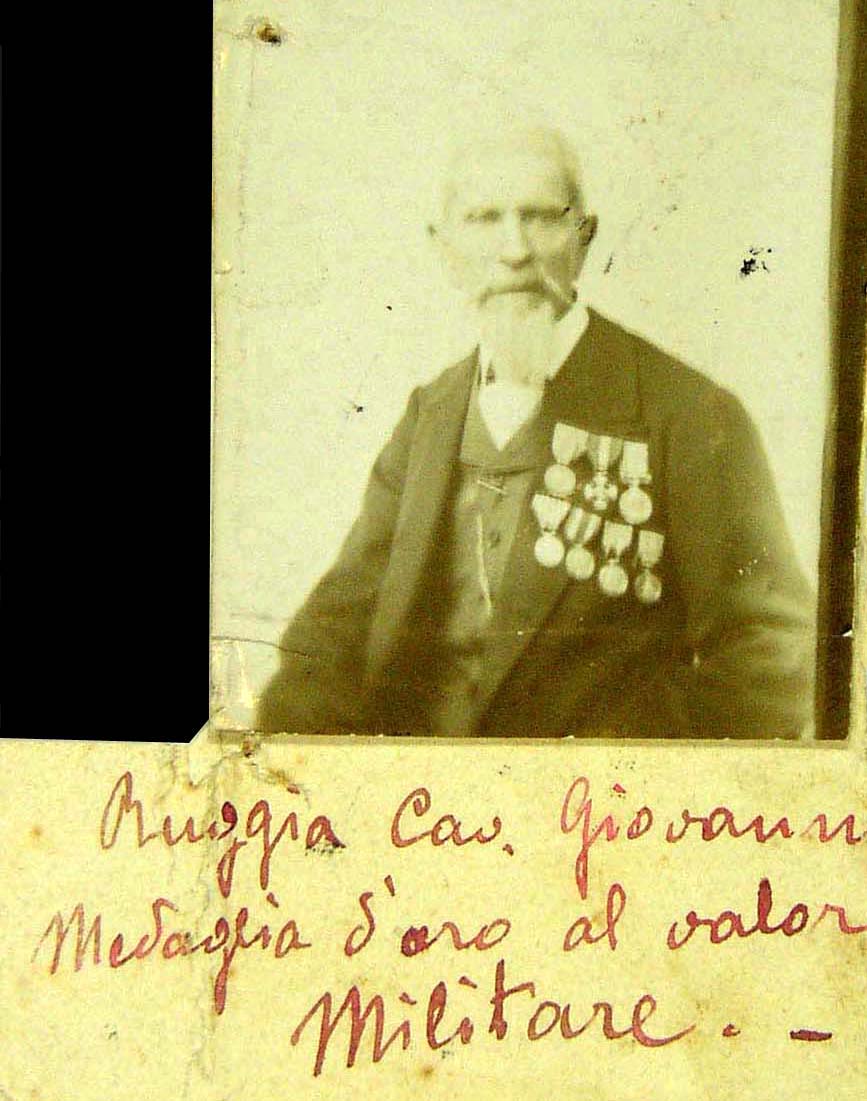 Ruggia Cav. Giovann
Medaglia d'oro al valor
Militare. -